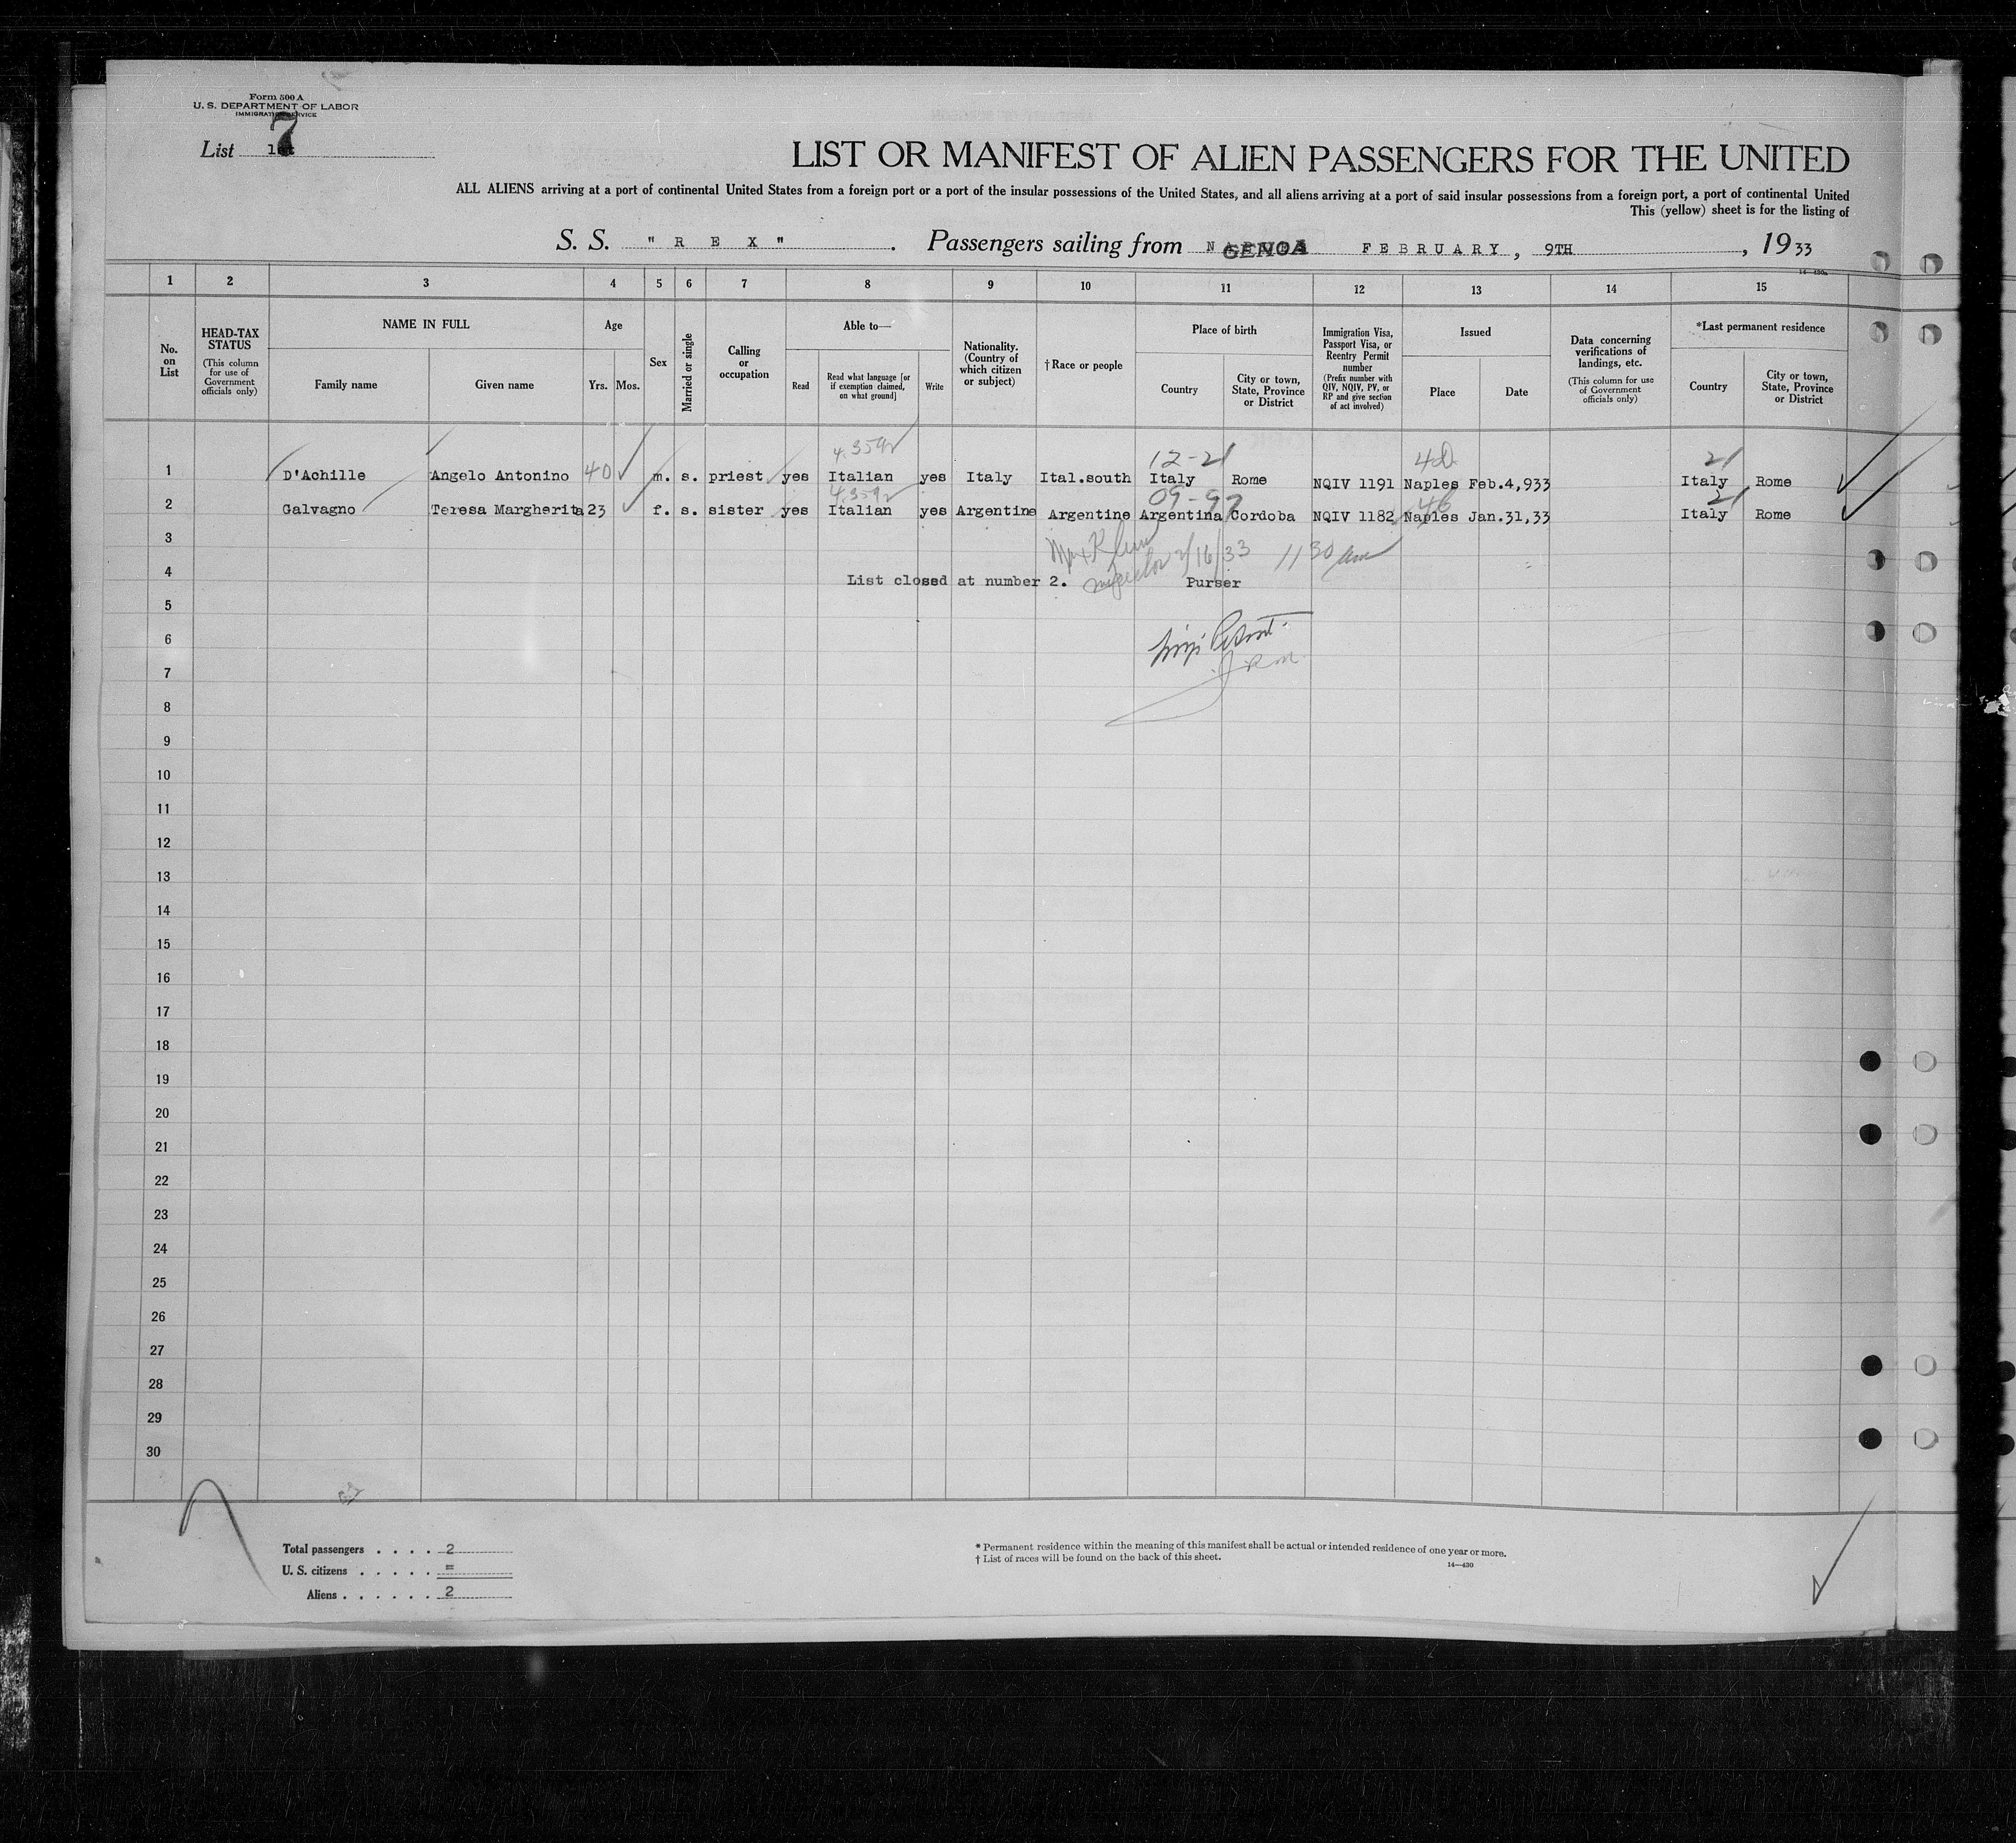 Form 500 A
U. S. DEPARTMENT OF LABOR
IMMIGRATION SERVICE
List 7
LIST OR MANIFEST OF ALIEN PASSENGERS FOR THE UNITED
ALL ALIENS arriving at a port of continental United States from a foreign port or a port of the insular possessions of the United States, and all aliens arriving at a port of said insular possessions from a foreign port, a port of continental United
This (yellow) sheet is for the listing of
S. S. " R E X " . Passengers sailing from GENOA FEBRUARY, 9TH , 19 33
14—430a
1 2 3 4 5 6 7 8 9 10 11 12 13 14 15
No. on List
HEAD-TAX STATUS
(This column for use of Government officials only)
NAME IN FULL
Family name
Given name
Age
Yrs.
Mos.
Sex
Married or single
Calling or occupation
Able to—
Read
Read what language [or if exemption claimed, on what ground]
Write
Nationality. (Country of which citizen or subject)
† Race or people
Place of birth
Country
City or town, State, Province or District
Immigration Visa, Passport Visa, or Reentry Permit number
(Prefix number with QIV, NQIV, PV, or RP and give section of act involved)
Issued
Place
Date
Data concerning verifications of landings, etc.
(This column for use of Government officials only)
*Last permanent residence
Country
City or town, State, Province or District
12-21 21
1 D'Achille Angelo Antonino 40 m. s. priest yes Italian yes Italy Ital.south Italy Rome NQIV 1191 Naples Feb.4,933 Italy Rome
21
2 Galvagno Teresa Margherita 23 f. s. sister yes Italian yes Argentine Argentine Argentina Cordoba NQIV 1182 Naples Jan.31,33 Italy Rome
3 2/16/33 11 30 am
4 List closed at number 2. Purser
5
6
7
8
9
10
11
12
13
14
15
16
17
18
19
20
21
22
23
24
25
26
27
28
29
30
Total passengers . . . . 2
U. S. citizens . . . . . =
Aliens . . . . . . 2
* Permanent residence within the meaning of this manifest shall be actual or intended residence of one year or more.
† List of races will be found on the back of this sheet.
14—430